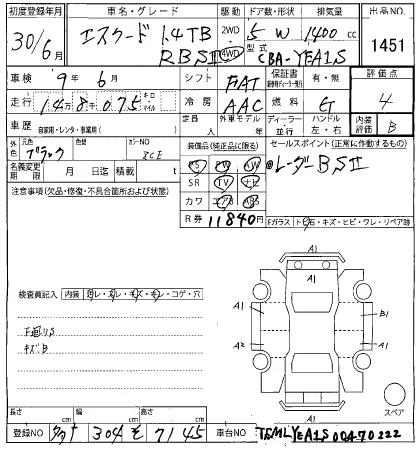 初度登録年月 車名・グレード 駆動 ドア数・形状 排気量 出品NO.
30/6月 エスクード 1.4TB 2WD 5 W 1400 cc 1451
RBSII 4WD 型式 CBA-YEA1S
車検 9年6月 シフト FAT 保証書 有・無 評価点
走行 14万8千075 キロ マイル 冷房 AAC 燃料 G 4
車歴 自家用・レンタ・事業用( ) 定員 人 外車モデル 年 ディーラー 並行 ハンドル 左・右 内装評価 B
外色 元色 ブラック 色替 カラーNO ZCE 装備品(純正品に限る) セールスポイント(正常に作動するもの)
名義変更期限 月 日迄 積載 t PS PW AW @レーダーBSII
注意事項(欠品・修復・不具合箇所および状態) SR TV ナビ
カワ エアB ABS
R券 11840円 Fガラス トビ石・キズ・ヒビ・ワレ・リペア跡
A1
A1
検査員記入 内装 ヨゴレ・スレ・キズ・モレ・コゲ・穴
A1 B1
下廻りS A2 A1
キズB
A1 スペア
長さ cm 幅 cm 高さ cm
登録NO 304 そ 7145 車台NO TSMLYEA1S00470222